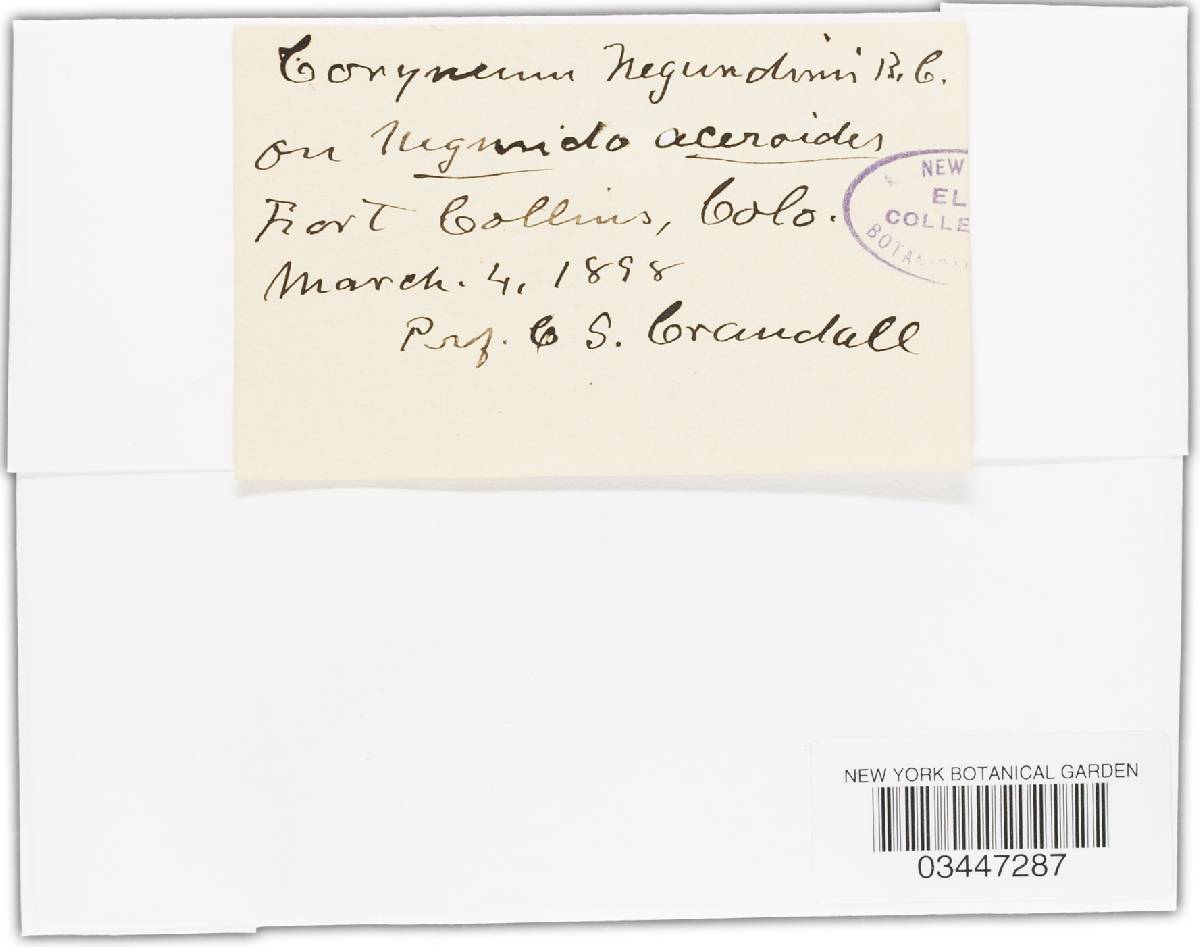 Coryneum Negundinis B. C.
on Negundo aceroides
Fort Collins, Colo.
March. 4, 1898
Prof. C S. Crandall
NEW
EL
COLLE
BOTAN
NEW YORK BOTANICAL GARDEN
03447287